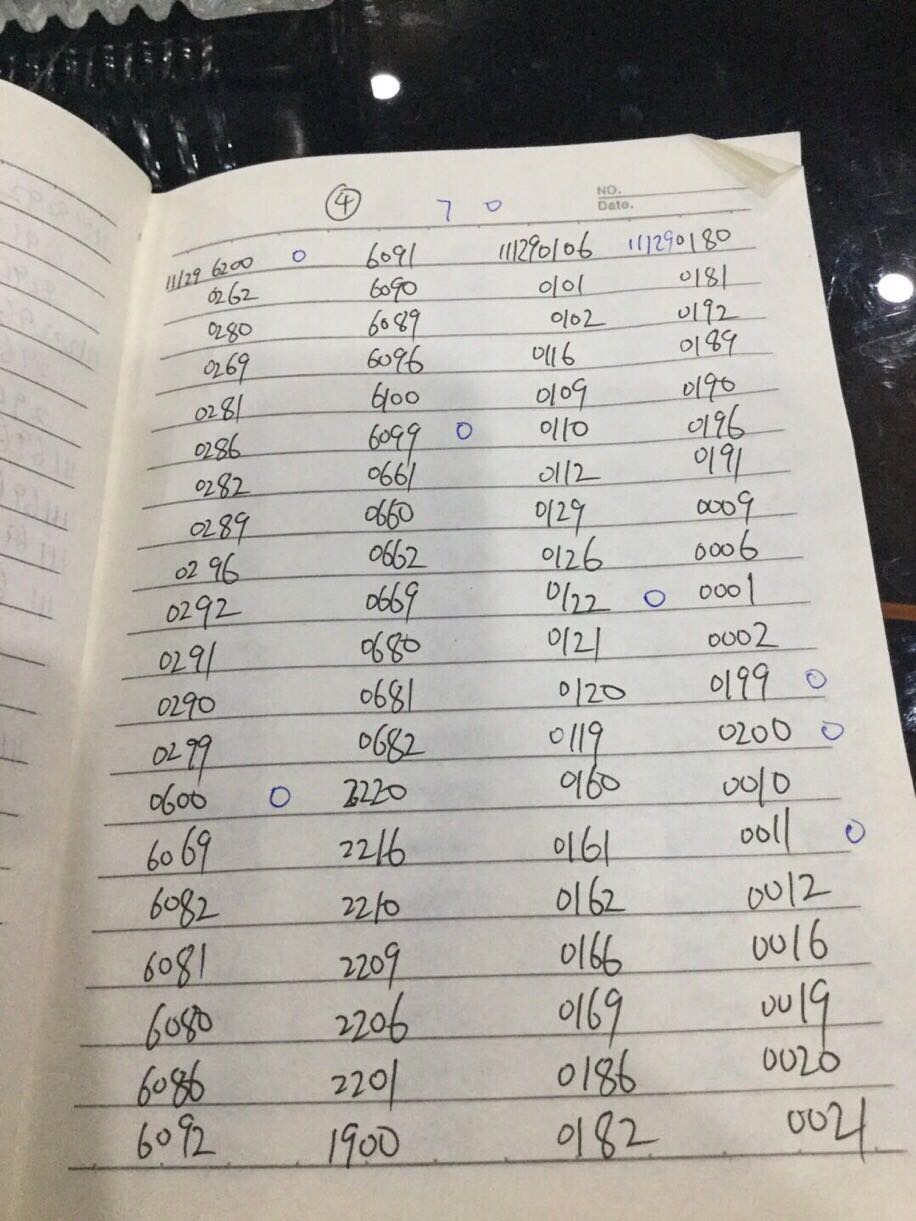 ④ 7 0 NO.
Date.
11/29 6200 0 6091 111290106 111290180
0262 6090 0101 0181
0280 6089 0102 0192
0269 6096 0116 0189
0281 6100 0109 0190
0286 6099 0 0110 0196
0282 0661 0112 0191
0289 0660 0129 0009
0296 0662 0126 0006
0292 0669 0122 0 0001
0291 0680 0121 0002
0290 0681 0120 0199 0
0299 0682 0119 0200 0
0600 0 2220 0160 0010
6069 2216 0161 0011 0
6082 2210 0162 0012
6081 2209 0166 0016
6080 2206 0169 0019
6086 2201 0186 0020
6092 1900 0182 0021